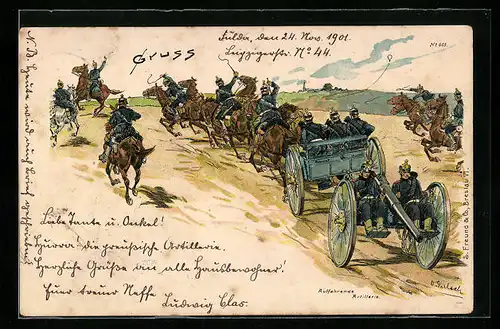 Fulda, den 24. Nov. 1901.
Leipzigerstr. No 44.
Gruss
No 661.
Liebe Tante u. Onkel!
Hurra! die preußische Artillerie.
Herzliche Grüße an alle Hausbewohner!
Euer treuer Neffe
Ludwig Clas.
N.B. heute wird
Auffahrende
Artillerie.
S. Freund & Co, Breslau V.